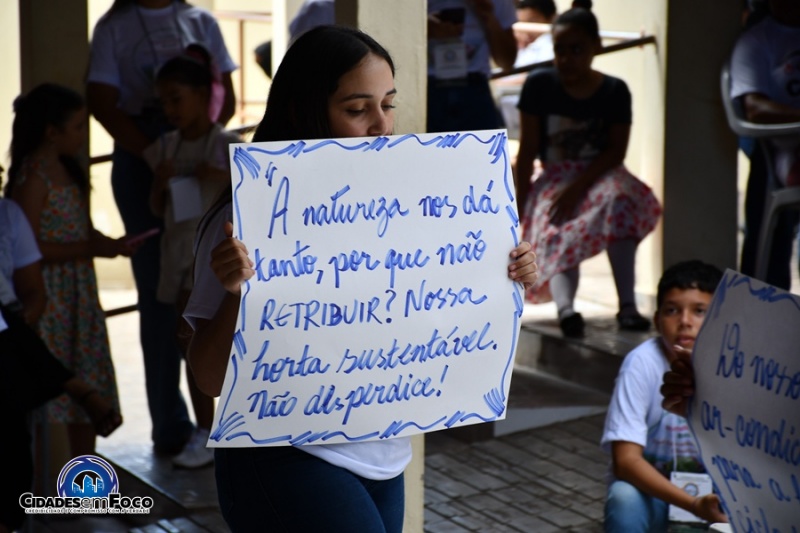 "A natureza nos dá
tanto, por que não
RETRIBUIR? Nossa
horta sustentável.
Não desperdice!
Do nosso
ar-condic
para a
CIDADES EM FOCO